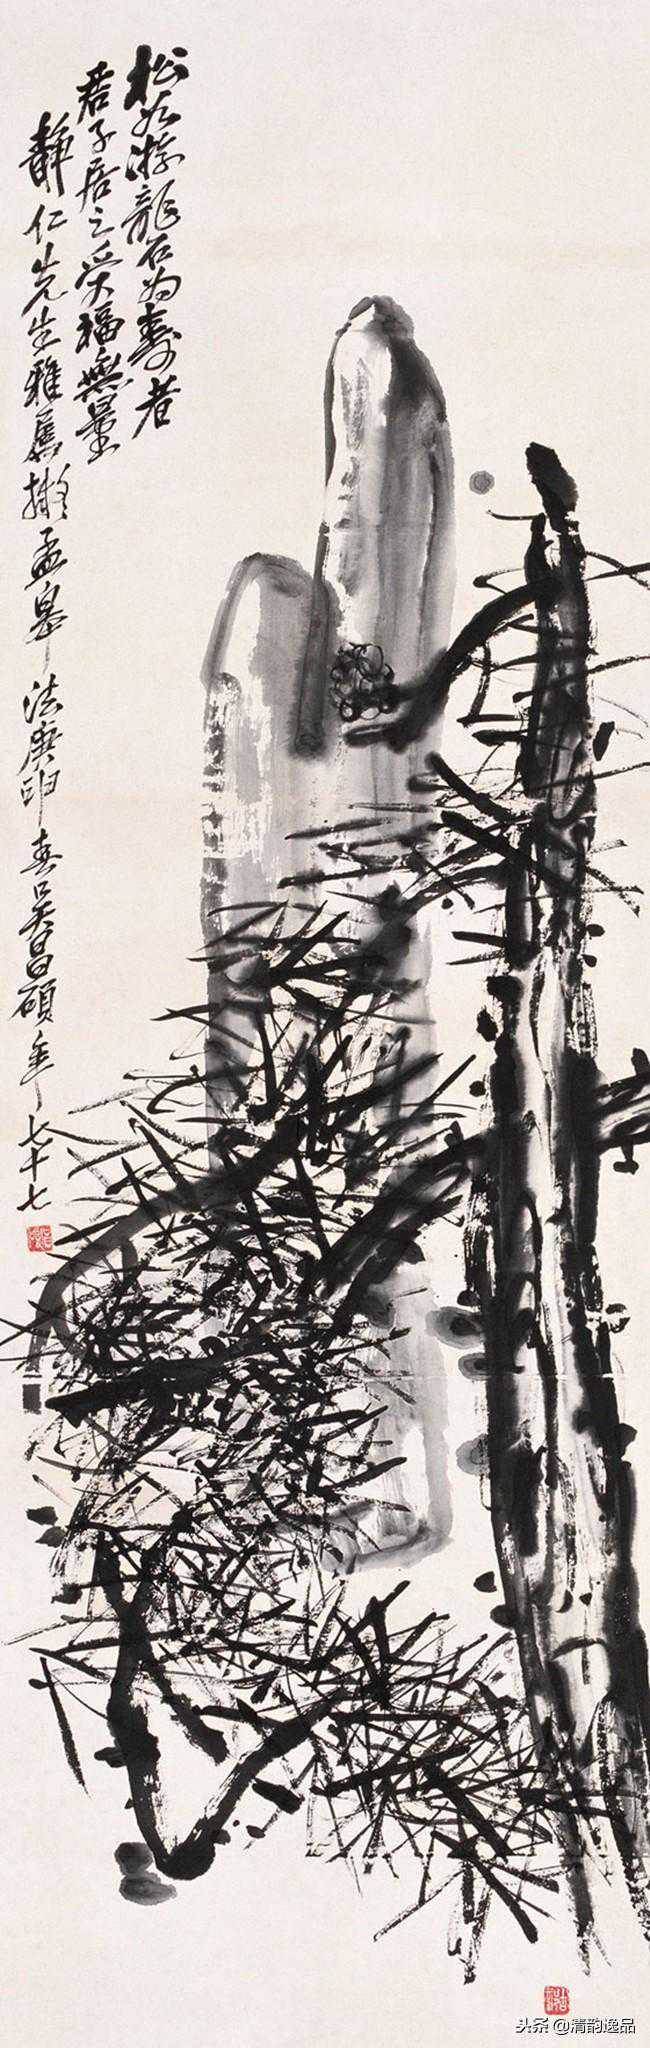 松如游龍石為壽者
君子居之受福無量
靜仁先生雅屬擬孟皋
法庚申春吳昌碩年七十七
头条 @清韵逸品